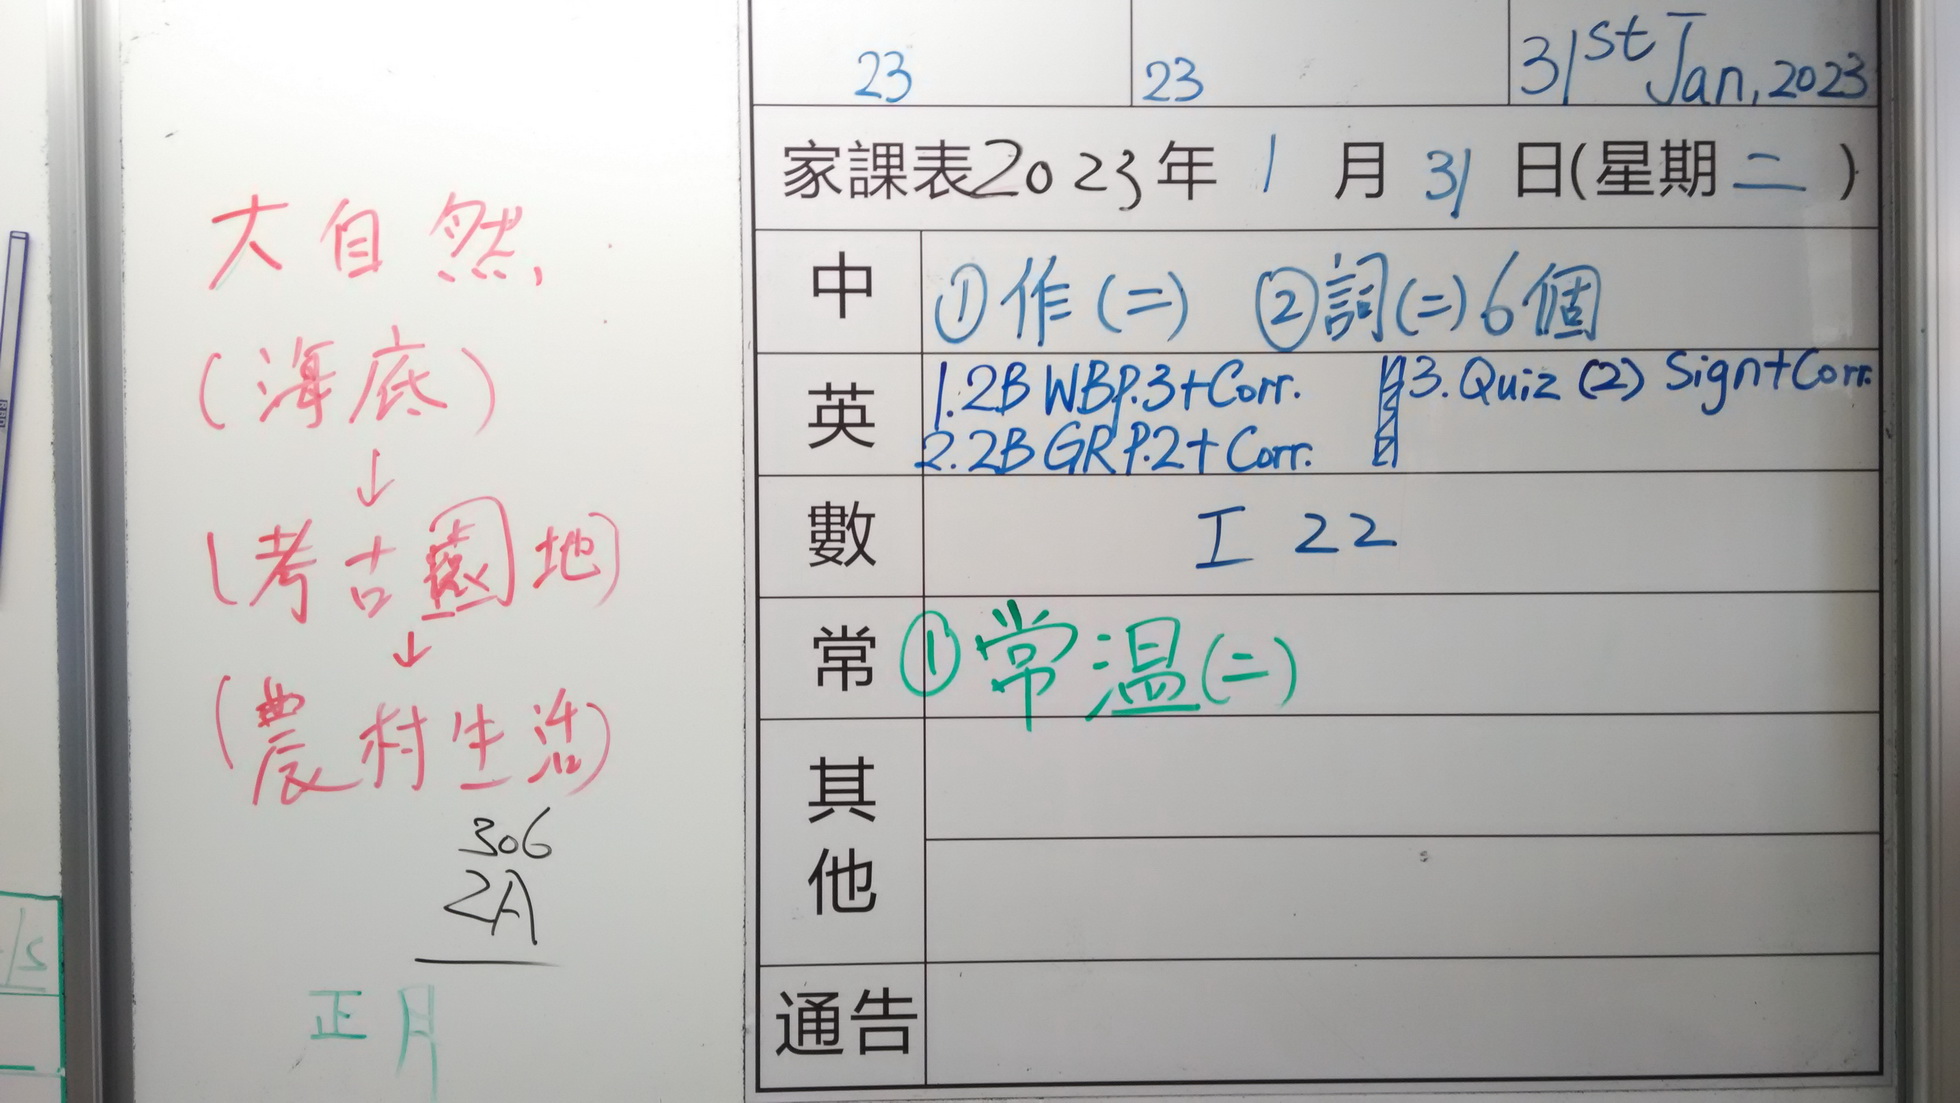 大自然
(海底)
↓
(考古園地)
↓
(農村生活)
306
2A
正月
23 23 31st Jan, 2023
家課表2023年 1 月 31 日(星期二)
中 ①作(二) ②詞(二)6個
英 1.2B WB P.3+Corr. 3. Quiz (2) Sign+Corr.
2.2B GR P.2+Corr.
數 工 22
常 ①常温(二)
其他
通告